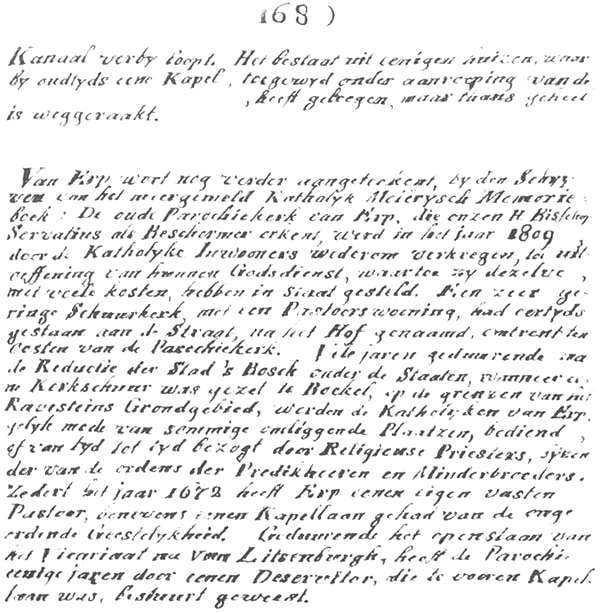 168 )
Kanaal verby loopt. Het bestaat uit eenigen huizen, waar
by oudtyds eene Kapel, toegewyd onder aanroeping van de
, heeft gelegen, maar thans geheel
is weggeraakt.
Van Erp wort nog verder aangeteekent, by den Schry=
ver van het meergemeld Katholyk Meierysch Memorie=
boek: De oude Parochiekerk van Erp, die onzen H. Bisschop
Servatius als Beschermer erkent, werd in het jaar 1809,
door de Katholyke Inwooners wederom verkregen, tot uit=
oeffening van hunnen Godsdienst, waartoe zy dezelve,
met veele kosten, hebben in staat gesteld. Een zeer ge=
ringe Schuurkerk, met een Pastoorswoning, had eertyds
gestaan aan de Straat, na het Hof genaamd, omtrent ten
Oosten van de Parochiekerk. jaren geduurende na
de Reductie der Stad 's Bosch onder de Staaten, wanneer ee=
ne Kerkschuur was gezet te Boekel, op de grenzen van het
Ravesteins Grondgebied, werden de Katholyken van Erp,
gelyk mede van sommige omliggende Plaatzen, bediend,
of van tyd tot tyd bezogt door Religieuse Priesters, zynde
der van de ordens der Predikheeren en Minderbroeders.
Zedert het jaar 1672 heeft Erp eenen eigen vasten
Pastoor, benevens eenen Kapellaan gehad van de onge=
ordende Geestelykheid. Geduurende het openstaan van
het Vicariaat na van Litsenburgh, heeft de Parochie
eenige jaren door eenen Deservitor, die te vooren Kapel=
laan was, bestuurt geweest.